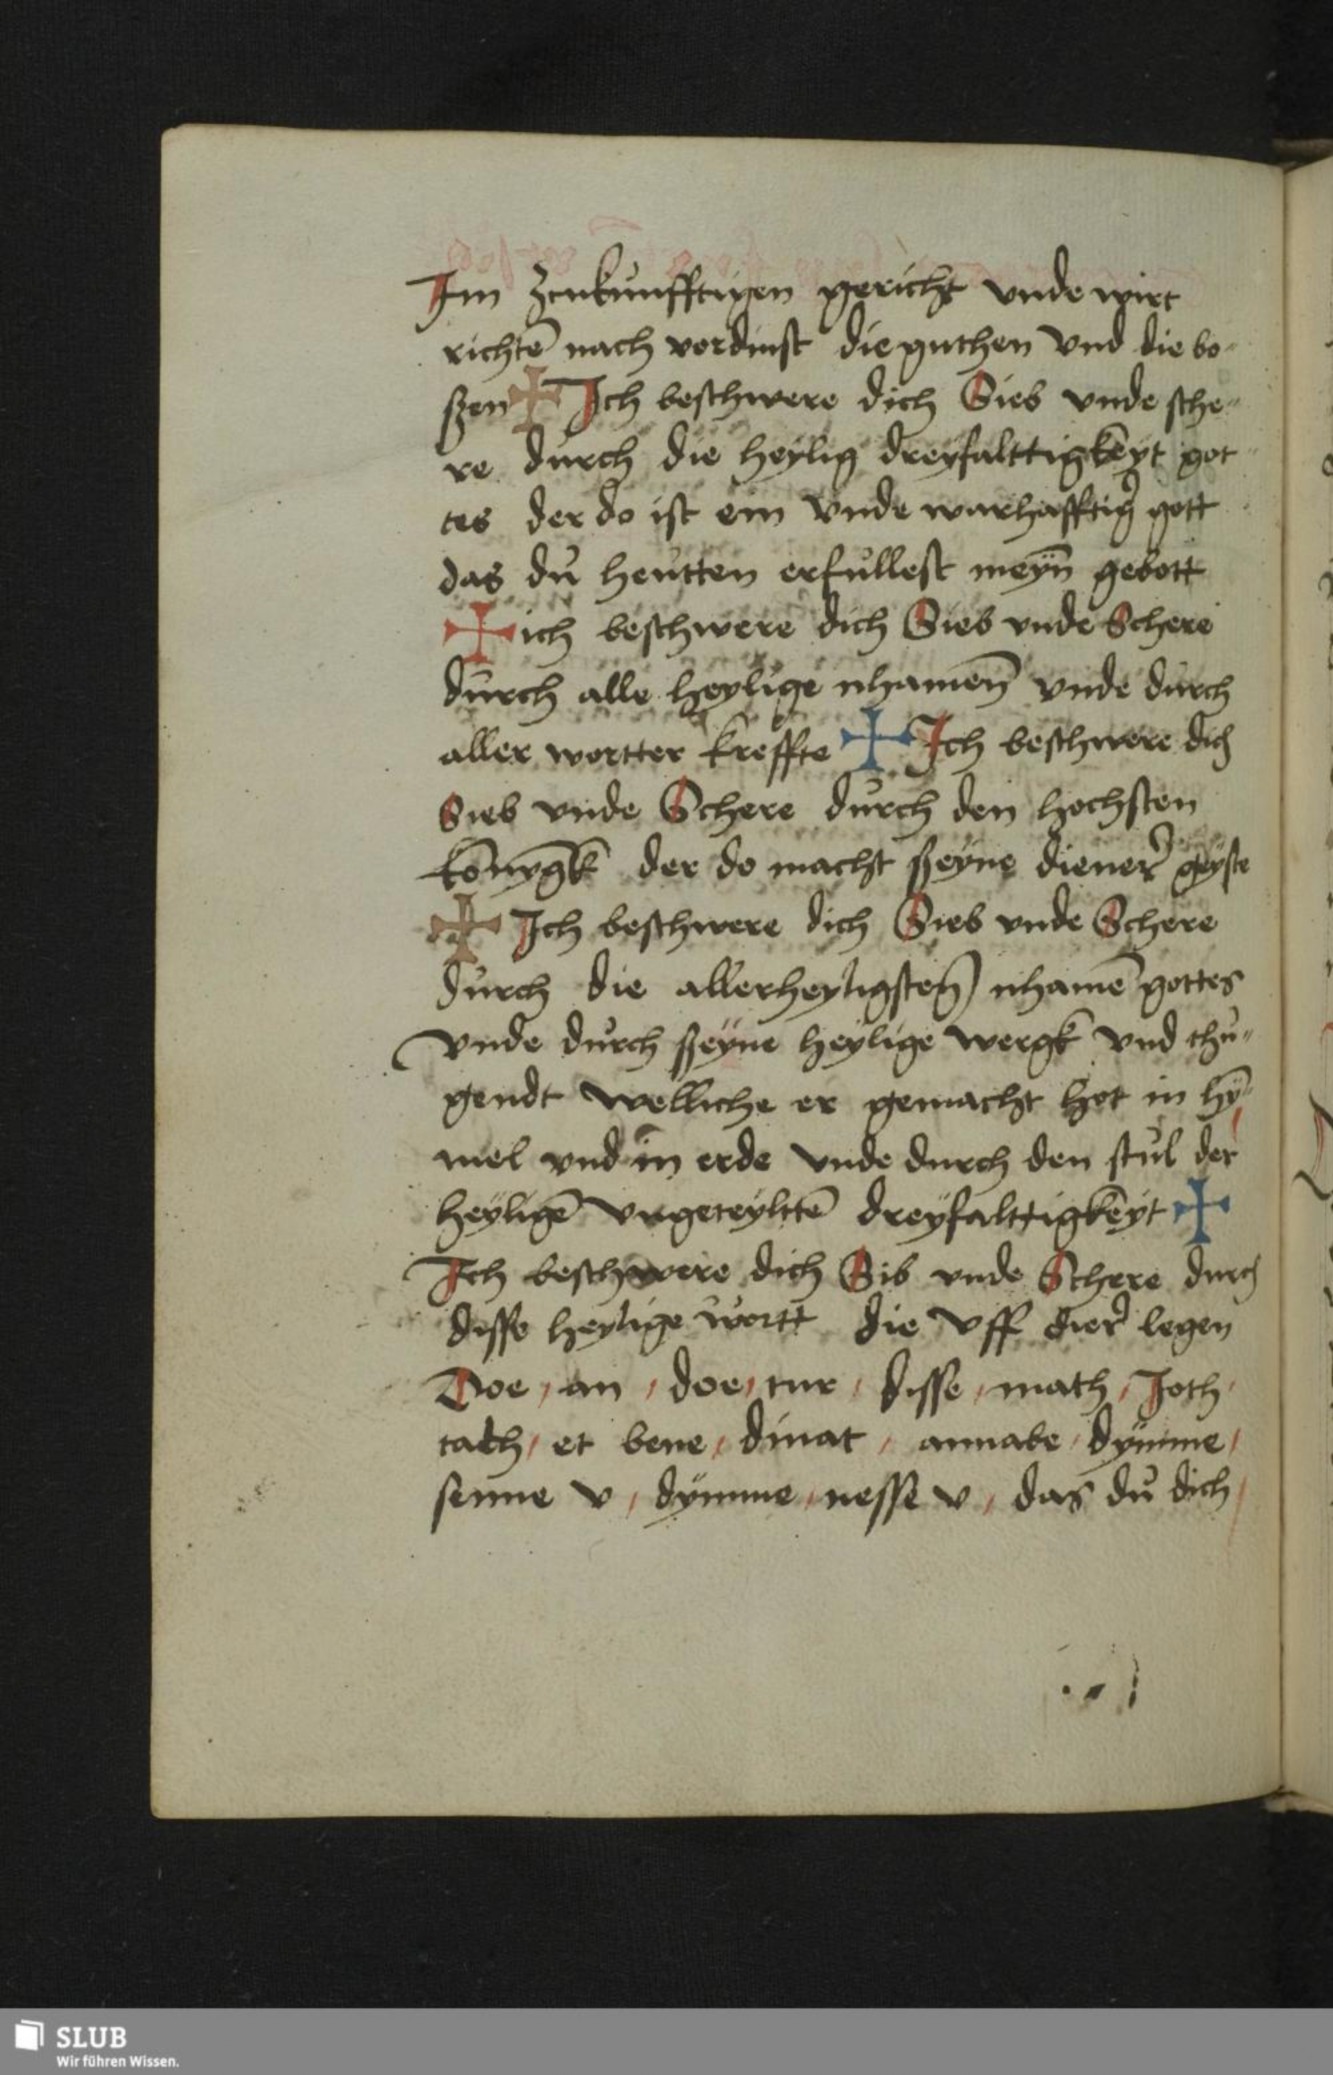 Im zcukunfftigen gericht vnde wirt
richtē nach vordinst die guthen vnd die bo-
ßen ✠ Ich beschwere dich Sieb vnde sche-
re durch die heylig dreyfalttigkeyt got
tes der do ist ein vnde warhafftig gott
das du heutten erfullest meyn̄ gebott
✠ ich beschwere dich Sieb vnde Schere
durch alle heylige nhamen̄ vnde durch
aller wortter kreffte ✠ Ich beschwere dich
Sieb vnde Schere durch den hochsten
konygk der do macht ßeyne diener geyste
✠ Ich beschwere dich Sieb vnde Schere
durch die allerheyligsten nhamē gottes
vnde durch ßeyne heylige wergk vnd thu-
gendt welliche er gemacht hot in hÿ-
mel vnd in erde vnde durch den stul der
heyligē vngeteylttē dreyfalttigkeyt ✠
Ich beschwere dich Sib vnde Schere durch
disse heylige wortt die vff dier legen
Doe / an / doe / tur / disse / math / Joth /
tath / et bene / dinat / annabe / dÿmme /
senne v / dÿmme / nesse v / das du dich /
SLUB
Wir führen Wissen.